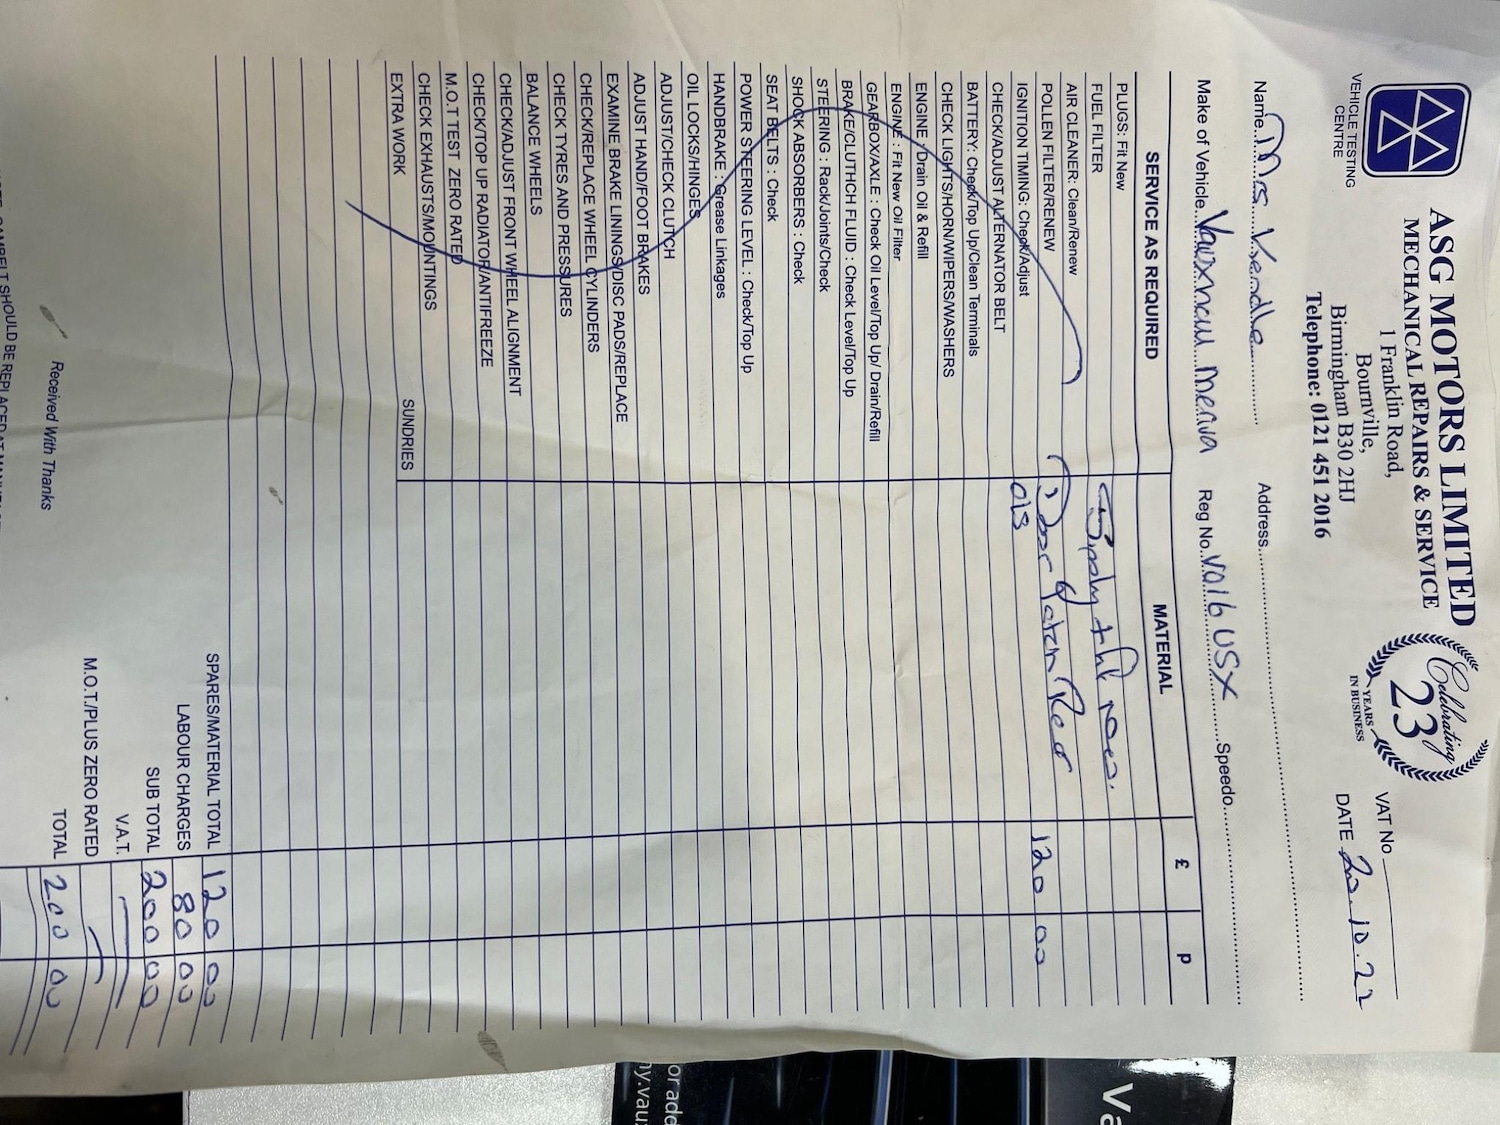 ASG MOTORS LIMITED
MECHANICAL REPAIRS & SERVICE
1 Franklin Road,
Bournville,
Birmingham B30 2HJ
Telephone: 0121 451 2016
VEHICLE TESTING
CENTRE
Celebrating
23
YEARS
IN BUSINESS
VAT No
DATE 20.10.22
Name Mrs Kendle Address
Make of Vehicle Vauxhall Meriva Reg No. VO16 USX Speedo
SERVICE AS REQUIRED MATERIAL £ p
PLUGS: Fit New
FUEL FILTER Supply + fit
AIR CLEANER: Clean/Renew
POLLEN FILTER/RENEW Door 120 00
IGNITION TIMING: Check/Adjust O/S
CHECK/ADJUST ALTERNATOR BELT
BATTERY: Check/Top Up/Clean Terminals
CHECK LIGHTS/HORN/WIPERS/WASHERS
ENGINE: Drain Oil & Refill
ENGINE: Fit New Oil Filter
GEARBOX/AXLE : Check Oil Level/Top Up/ Drain/Refill
BRAKE/CLUTHCH FLUID : Check Level/Top Up
STEERING : Rack/Joints/Check
SHOCK ABSORBERS : Check
SEAT BELTS : Check
POWER STEERING LEVEL : Check/Top Up
HANDBRAKE : Grease Linkages
OIL LOCKS/HINGES
ADJUST/CHECK CLUTCH
ADJUST HAND/FOOT BRAKES
EXAMINE BRAKE LININGS/DISC PADS/REPLACE
CHECK/REPLACE WHEEL CYLINDERS
CHECK TYRES AND PRESSURES
BALANCE WHEELS
CHECK/ADJUST FRONT WHEEL ALIGNMENT
CHECK/TOP UP RADIATOR/ANTIFREEZE
M.O.T TEST ZERO RATED
CHECK EXHAUSTS/MOUNTINGS
EXTRA WORK SUNDRIES
SPARES/MATERIAL TOTAL 120 00
LABOUR CHARGES 80 00
SUB TOTAL 200 00
V.A.T.
M.O.T./PLUS ZERO RATED
Received With Thanks TOTAL 200 00
SHOULD BE REPLACED AT